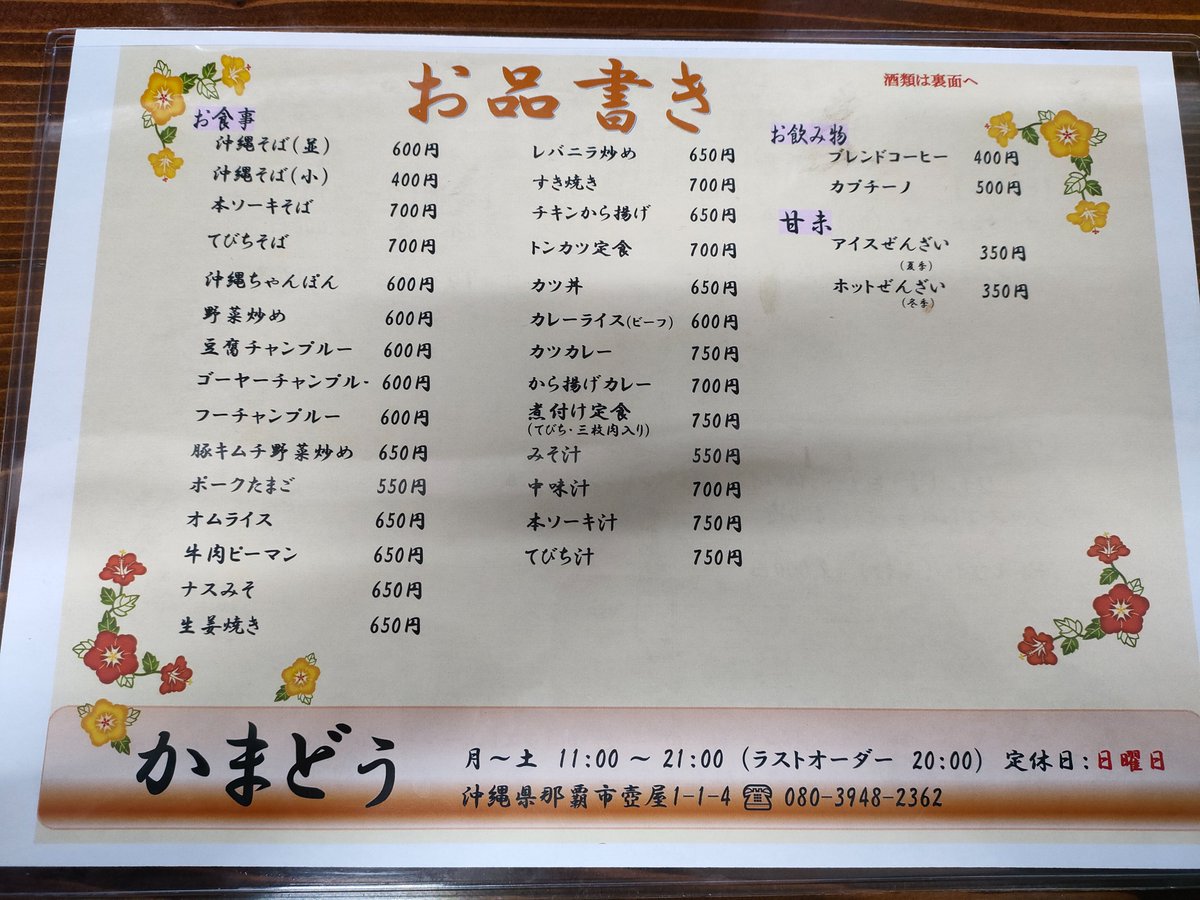 お品書き
酒類は裏面へ
お食事
沖縄そば(並) 600円
沖縄そば(小) 400円
本ソーキそば 700円
てびちそば 700円
沖縄ちゃんぽん 600円
野菜炒め 600円
豆腐チャンプルー 600円
ゴーヤーチャンプルー 600円
フーチャンプルー 600円
豚キムチ野菜炒め 650円
ポークたまご 550円
オムライス 650円
牛肉ピーマン 650円
ナスみそ 650円
生姜焼き 650円
レバニラ炒め 650円
すき焼き 700円
チキンから揚げ 650円
トンカツ定食 700円
カツ丼 650円
カレーライス(ビーフ) 600円
カツカレー 750円
から揚げカレー 700円
煮付け定食 750円
(てびち・三枚肉入り)
みそ汁 550円
中味汁 700円
本ソーキ汁 750円
てびち汁 750円
お飲み物
ブレンドコーヒー 400円
カプチーノ 500円
甘未
アイスぜんざい 350円
(夏季)
ホットぜんざい 350円
(冬季)
かまどぅ
月〜土 11:00 〜 21:00 (ラストオーダー 20:00) 定休日:日曜日
沖縄県那覇市壺屋1-1-4 ☎ 080-3948-2362